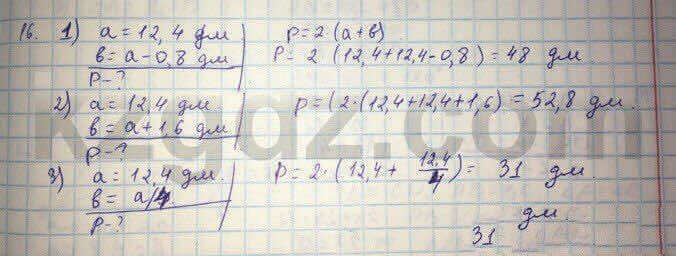 16. 1) a = 12,4 дм P = 2·(a + в)
в = a - 0,8 дм P = 2 (12,4 + 12,4 - 0,8) = 48 дм
P - ?
2) a = 12,4 дм. P = (2·(12,4 + 12,4 + 1,6) = 52,8 дм.
в = a + 1,6 дм
P - ?
3) a = 12,4 дм. P = 2·(12,4 + 12,4/4) = 31 дм.
в = a/4
P - ?
31 дм.
kzgdz.com